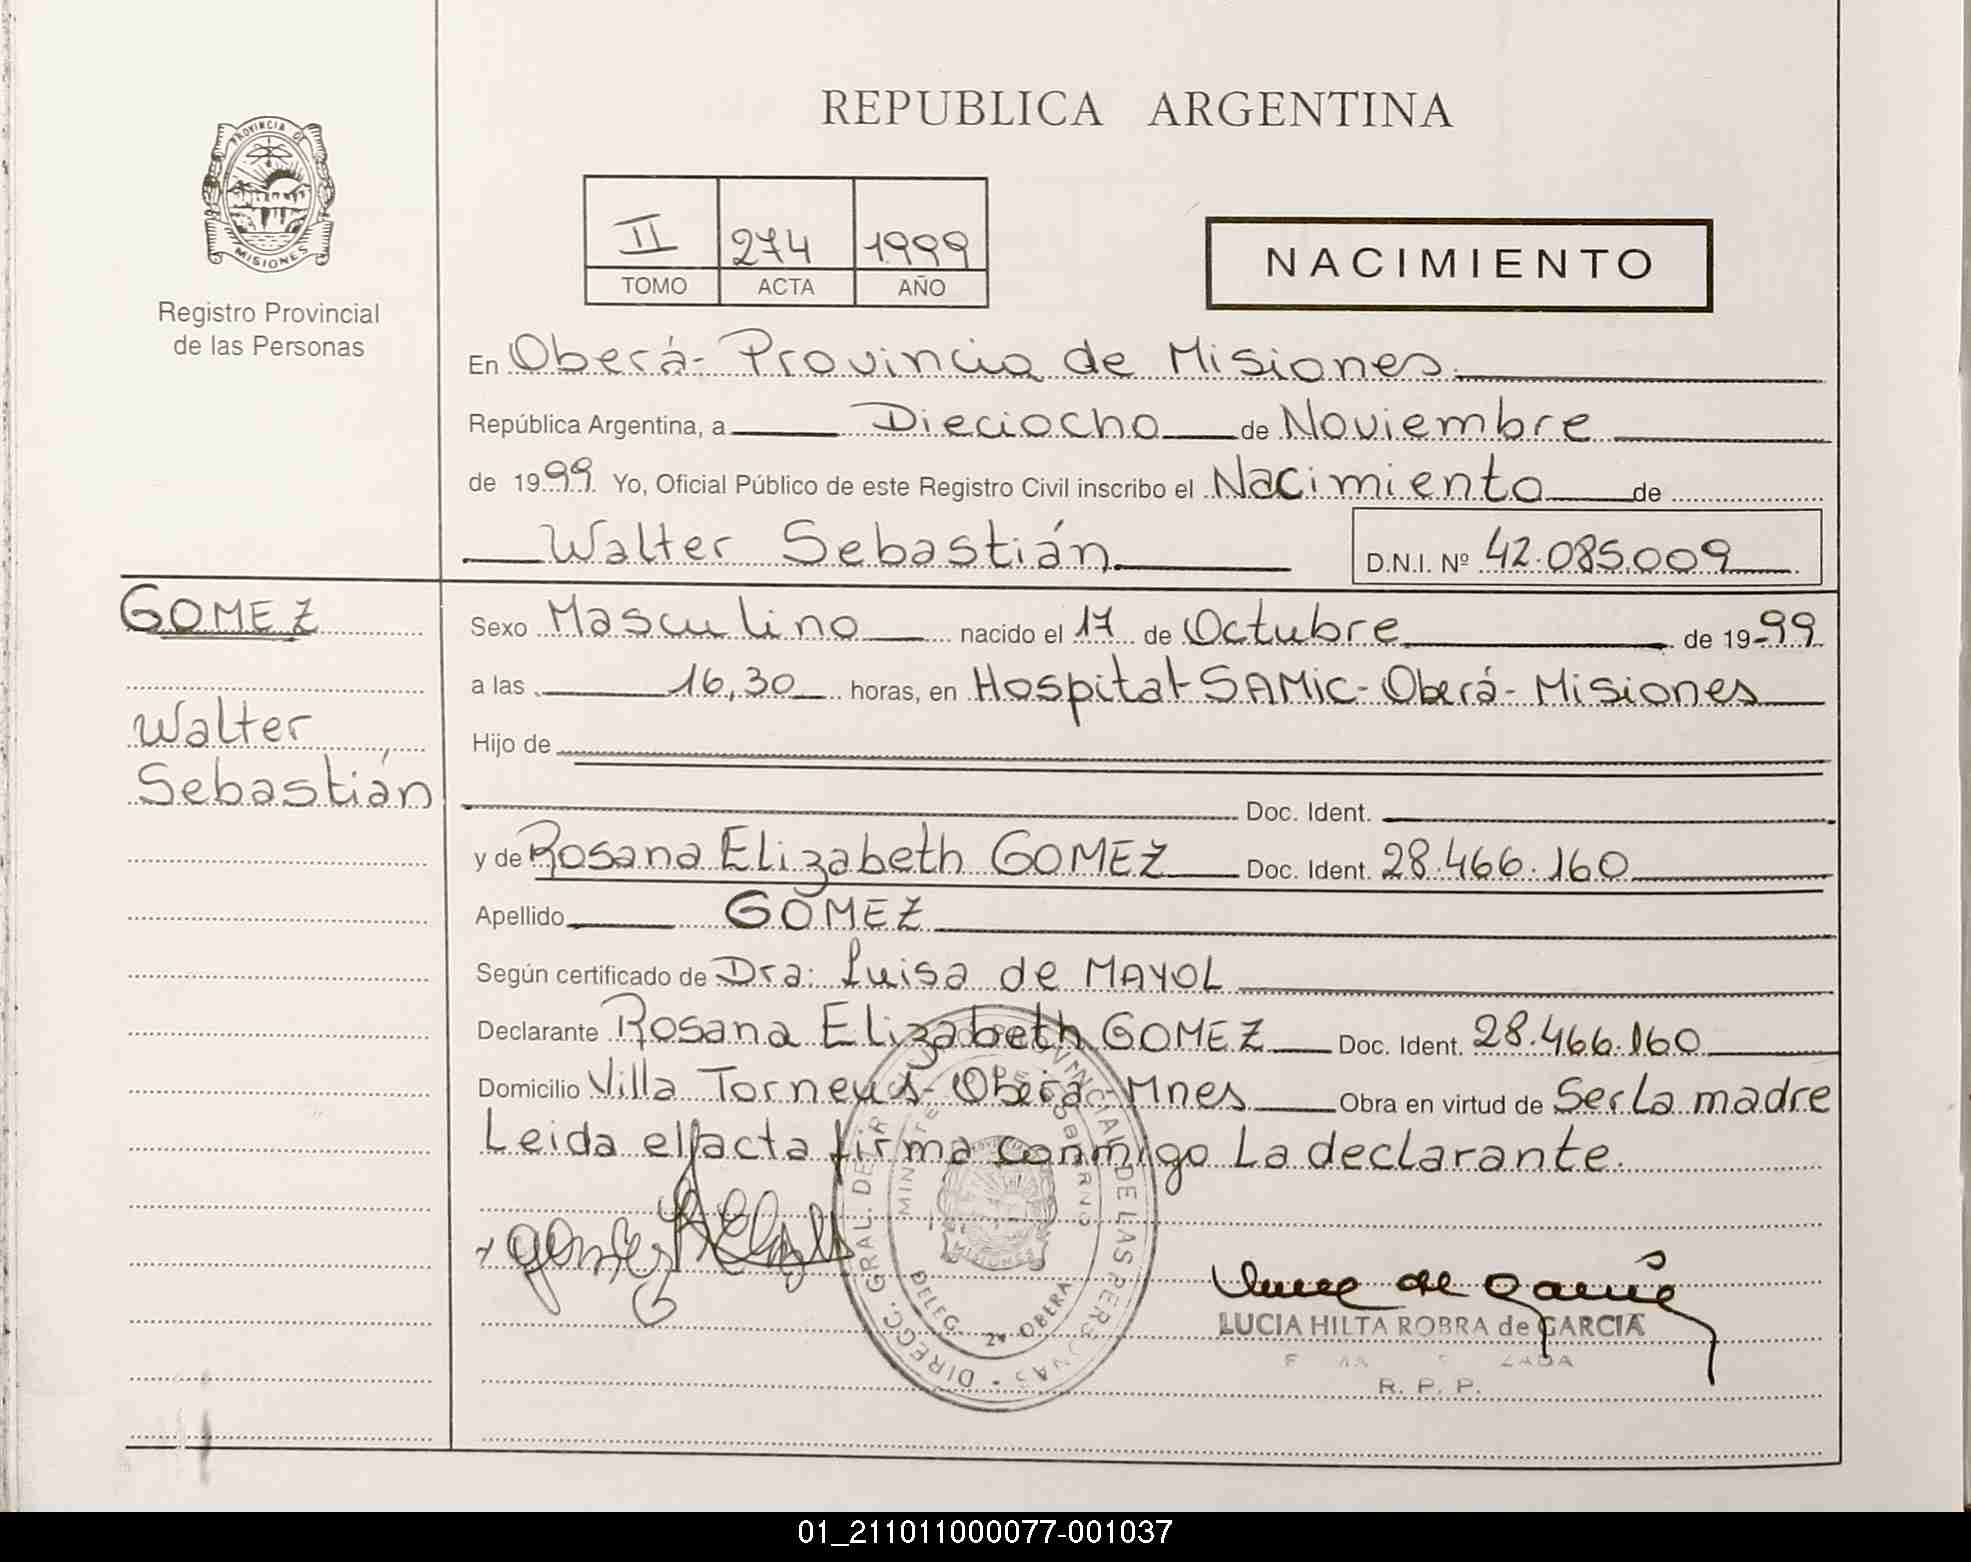 REPUBLICA ARGENTINA
PROVINCIA DE
MISIONES
Registro Provincial
de las Personas
II 274 1999
TOMO ACTA AÑO
NACIMIENTO
En Oberá - Provincia de Misiones.
República Argentina, a Dieciocho de Noviembre
de 1999 Yo, Oficial Público de este Registro Civil inscribo el Nacimiento de
Walter Sebastián
D.N.I. Nº 42.085.009
GOMEZ
Walter
Sebastián
Sexo Masculino nacido el 17 de Octubre de 19-99
a las 16,30 horas, en Hospital SAMIC - Oberá - Misiones
Hijo de
Doc. Ident.
y de Rosana Elizabeth GOMEZ Doc. Ident. 28.466.160
Apellido GOMEZ
Según certificado de Dra: Luisa de MAYOL
Declarante Rosana Elizabeth GOMEZ Doc. Ident. 28.466.160
Domicilio Villa Torneus - Oberá - Mnes Obra en virtud de Ser La madre
Leida el acta firma conmigo La declarante.
DIRECC. GRAL. DEL REGISTRO PROVINCIAL DE LAS PERSONAS
MINISTERIO DE GOBIERNO
MISIONES
DELEG. 2ª OBERA
LUCIA HILTA ROBRA de GARCIA
R. P. P.
01_211011000077-001037